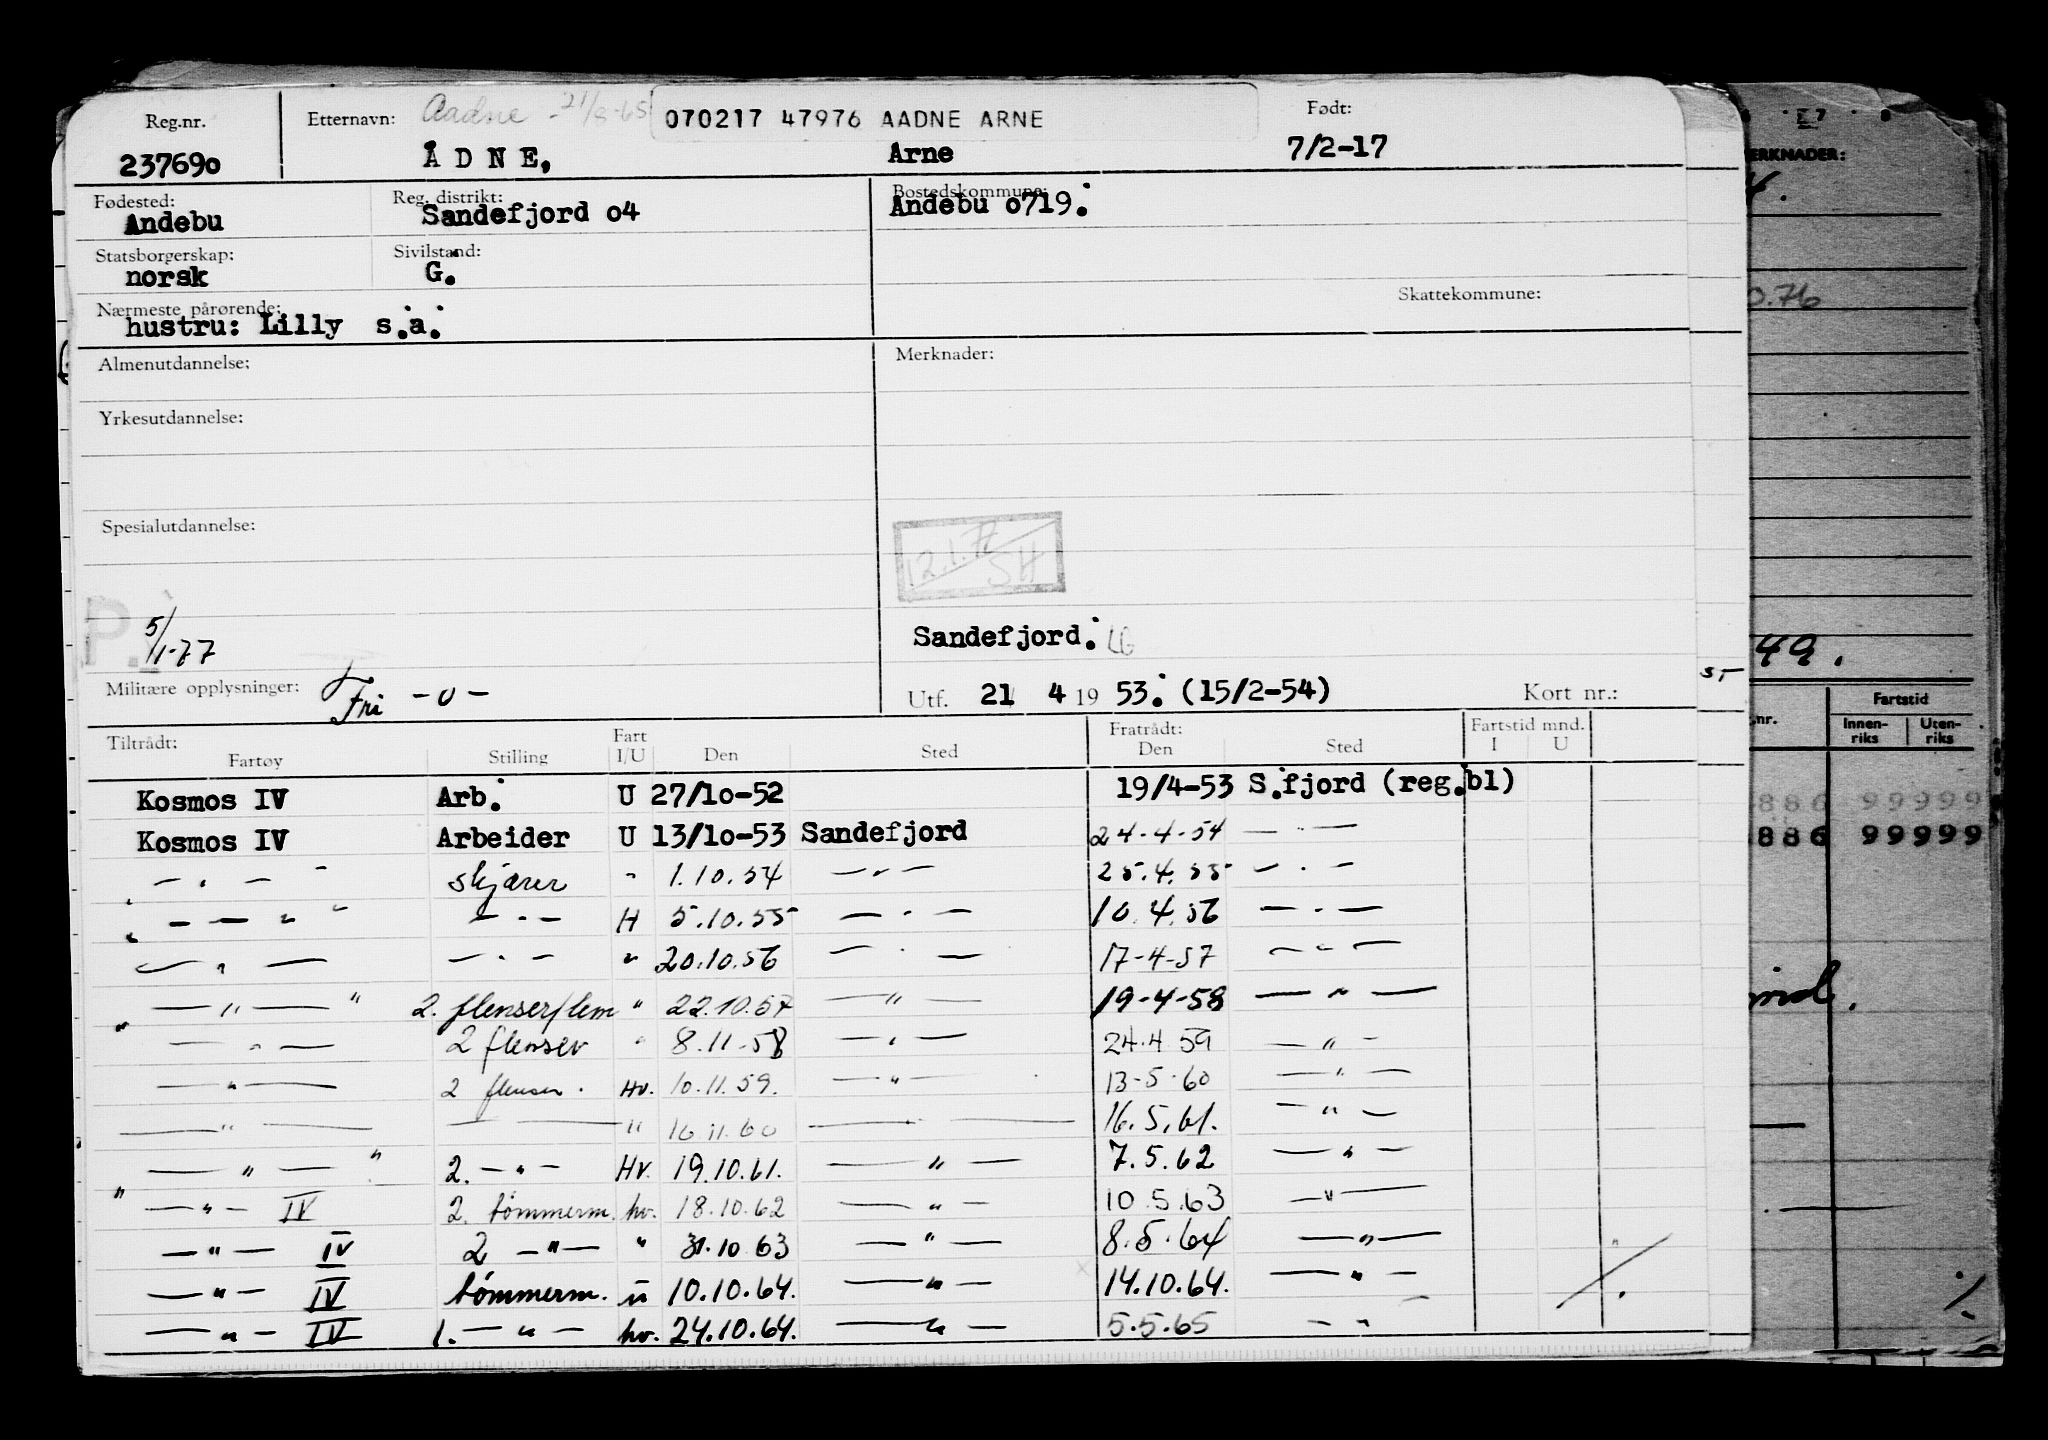 Reg.nr. Etternavn: Aadne - 21/8-65 070217 47976 AADNE ARNE Født:
237690 ÅDNE, Arne 7/2-17
Fødested: Reg. distrikt: Bostedskommune:
Andebu Sandefjord o4 Andebu o719.
Statsborgerskap: Sivilstand:
norsk G.
Nærmeste pårørende: Skattekommune:
hustru: Lilly s.a.
Almenutdannelse: Merknader:
Yrkesutdannelse:
Spesialutdannelse:
12.1.77 SH
P.
5/1-77
Sandefjord. LG
Militære opplysninger: Fri -o- Utf. 21 4 19 53. (15/2-54) Kort nr.:
Tiltrådt: Fart Fratrådt: Fartstid mnd.
Fartøy Stilling I/U Den Sted Den Sted I U
Kosmos IV Arb. U 27/10-52 19/4-53 S.fjord (reg.bl)
Kosmos IV Arbeider U 13/10-53 Sandefjord 24-4-54 — " —
— " — " skjærer " 1.10.54 — " — 25.4.55 — " —
" — — " " — " — H 5.10.55 — " — 10.4.56 — " —
— " — — " — " 20.10.56 — " — 17-4-57 — " —
— " — " 2. flenser/lem " 22.10.57 — " — 19-4-58 — " —
" — " — 2 flenser " 8.11-58 — " — 24.4 59 — " —
— " — 2 flenser. Hv. 10.11.59. — " — 13-5-60 — " —
— " — — " 16.11.60 — " — 16.5.61. — " —
— " — " 2. — " — Hv. 19.10.61. — " — 7.5.62 — " —
" — " — IV 2. tømmerm. hv. 18.10.62 — " — 10.5.63 — " —
— " — IV 2 — " — " 31.10 63 — " — 8.5.64 — " — "
— " — IV tømmerm. u 10.10.64. — " — 14.10.64. — " —
— " — IV 1. — " — hv. 24.10.64. — " — 5.5.65 — " —
MERKNADER:
0.76
49.
Fartstid
Innen-riks Uten-riks
886 99999
886 99999